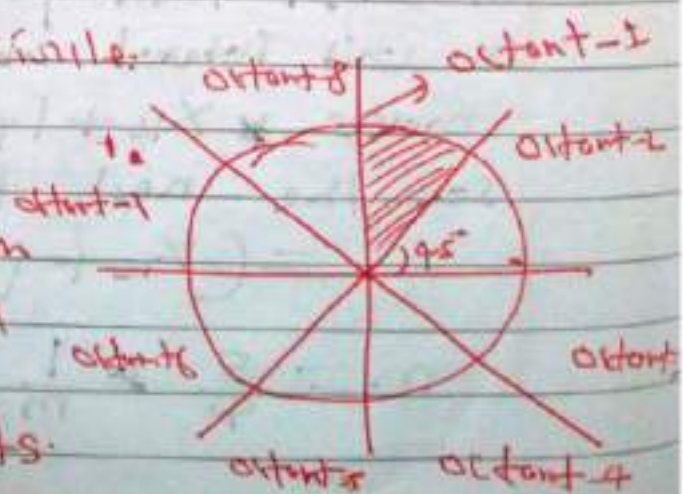 Octant-8
Octant-1
Octant-2
Octant-7
45°
Octant-6
Octant
Octant-5
Octant-4